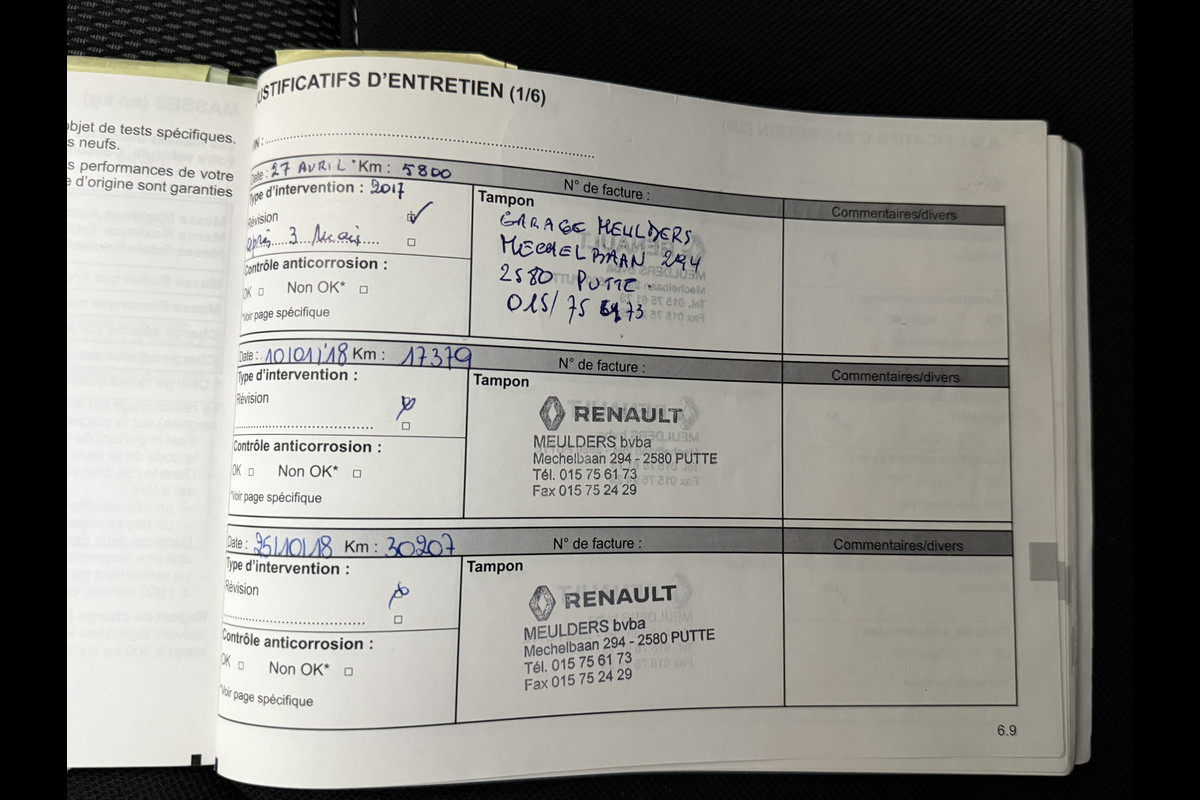 objet de tests spécifiques.
s neufs.
s performances de votre
e d'origine sont garanties
JUSTIFICATIFS D'ENTRETIEN (1/6)
Date : 27 AVRIL Km : 5800 N° de facture :
Type d'intervention : 2017 Tampon Commentaires/divers
Révision
après 3 mois
GARAGE MEULDERS
MECHELBAAN 294
2580 PUTTE.
015/75 6173
Contrôle anticorrosion :
OK Non OK*
*Voir page spécifique
Date : 10/01/'18 Km : 17379 N° de facture :
Type d'intervention : Tampon Commentaires/divers
Révision
RENAULT
MEULDERS bvba
Mechelbaan 294 - 2580 PUTTE
Tél. 015 75 61 73
Fax 015 75 24 29
Contrôle anticorrosion :
OK Non OK*
*Voir page spécifique
Date : 25/10/18 Km : 30207 N° de facture :
Type d'intervention : Tampon Commentaires/divers
Révision
RENAULT
MEULDERS bvba
Mechelbaan 294 - 2580 PUTTE
Tél. 015 75 61 73
Fax 015 75 24 29
Contrôle anticorrosion :
OK Non OK*
*Voir page spécifique
6.9